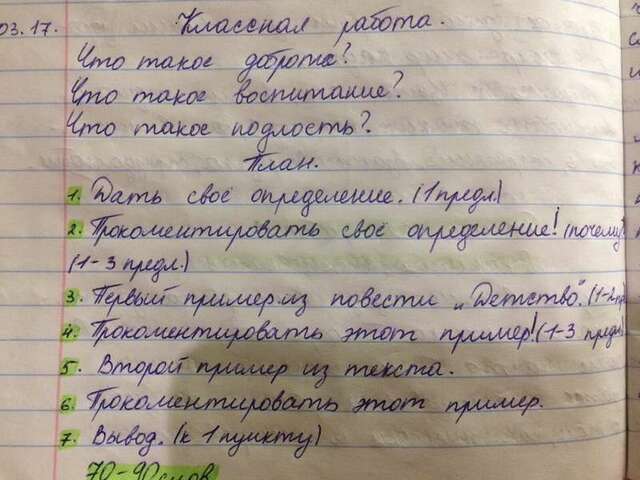 03.17. Классная работа.
Что такое доброта?
Что такое воспитание?
Что такое подлость?
План.
1. Дать своё определение. (1 предл.)
2. Прокоментировать своё определение! (почему
(1-3 предл.)
3. Первый пример из повести „Детство". (1-2 пр
4. Прокоментировать этот пример! (1-3 предл
5. Второй пример из текста.
6. Прокоментировать этот пример.
7. Вывод. (к 1 пункту)
70-90 слов